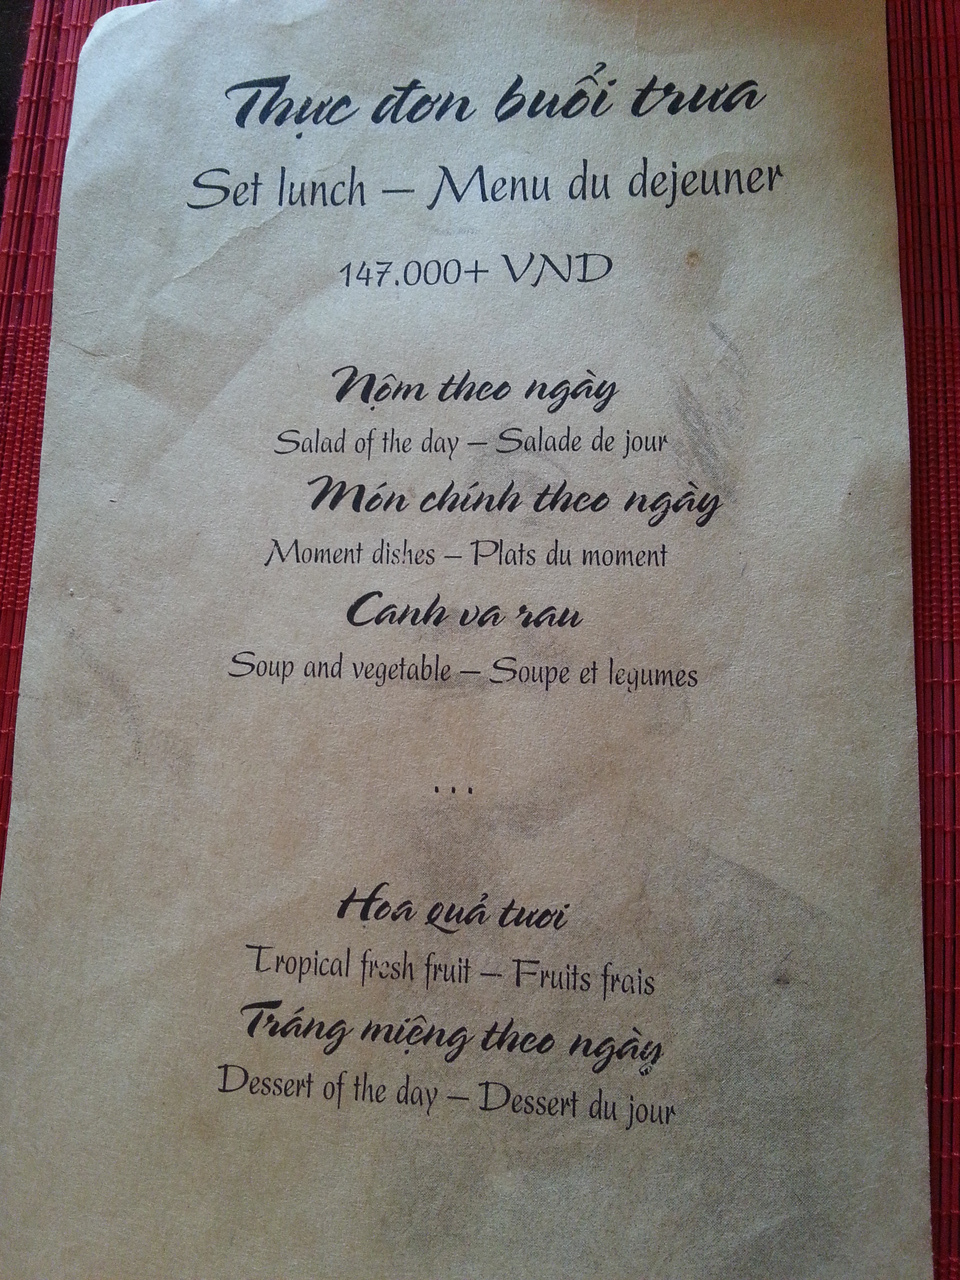 Thực đơn buổi trưa
Set lunch – Menu du dejeuner
147.000+ VND
Nộm theo ngày
Salad of the day – Salade de jour
Món chính theo ngày
Moment dishes – Plats du moment
Canh va rau
Soup and vegetable – Soupe et legumes
...
Hoa quả tươi
Tropical fresh fruit – Fruits frais
Tráng miệng theo ngày
Dessert of the day – Dessert du jour